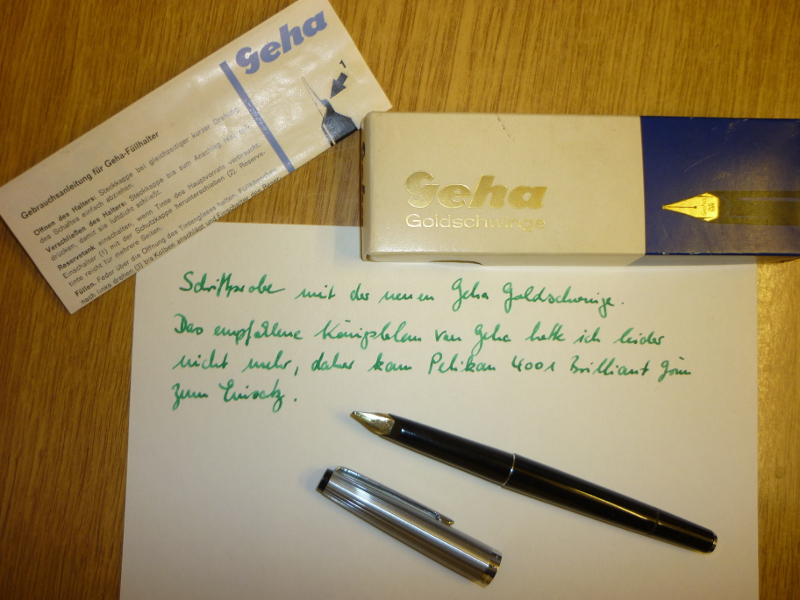 Geha
1
Gebrauchsanleitung für Geha-Füllhalter
Öffnen des Halters: Steckkappe bei gleichzeitiger kurzer Drehung
des Schaftes einfach abziehen.
Verschließen des Halters: Steckkappe bis zum Anschlag
drücken, damit sie luftdicht schließt.
Reservetank einschalten, wenn Tinte des Hauptvorrats verbraucht.
Einschalter (1) mit der Schutzkappe herunterschieben (2). Reserve-
tinte reicht für mehrere Seiten.
Füllen. Feder über die Öffnung des Tintenglases halten.
nach links drehen (3) bis Kolben anschlägt und
Geha
Goldschwinge
Schriftprobe mit der neuen Geha Goldschwinge.
Das empfohlene Königsblau von Geha hatte ich leider
nicht mehr, daher kam Pelikan 4001 Brilliant Grün
zum Einsatz.